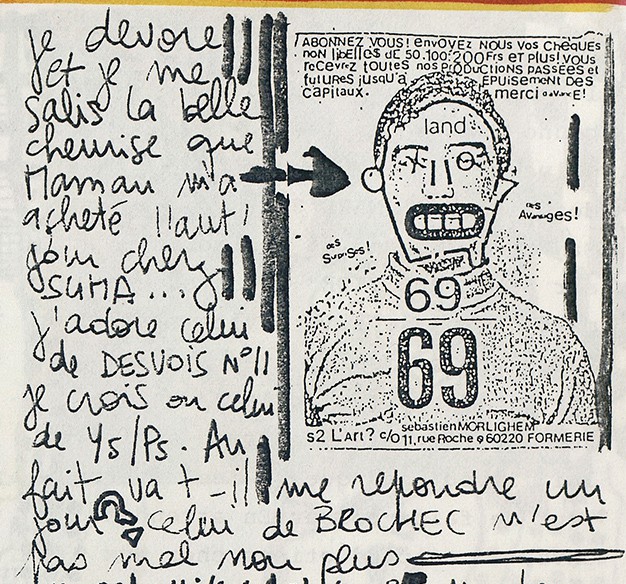 je devore
et je me
salis la belle
chemise que
Maman m'a
acheté l'aut'
jour chez
SUMA...
j'adore celui
de DESVOIS N°11
je crois ou celui
de Ys/Ps. Au
fait va t-il me repondre un
jour? Celui de BROCHEC n'est
pas mal non plus
ABONNEZ VOUS! envoyez nous vos cheques
non libellés de 50.100.200Frs et plus! vous
recevrez toutes nos productions passées et
futures jusqu'à epuisement des
capitaux. merci
land
des Surdses!
des Aveugles!
69
69
s2 L'Art? c/o sebastien MORLIGHEM
11, rue Roche 60220 FORMERIE